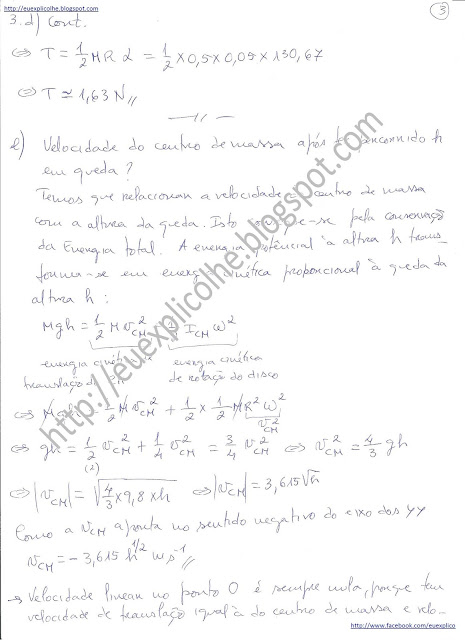 http://euexplicolhe.blogspot.com
3
3.d) Cont.
⇔ T = 1/2 M R α = 1/2 × 0,5 × 0,05 × 130,67
⇔ T ≃ 1,63 N //
e) Velocidade do centro de massa após ter percorrido h
em queda?
Temos que relacionar a velocidade centro de massa
com a altura da queda. Isto -se pela conservação
da Energia total. A energia potêncial à altura h trans
forma-se em energia cinética proporcional à queda da
altura h:
Mgh = 1/2 M v_CM^2 + 1/2 I_CM ω^2
energia cinética de energia cinética
translação do CM de rotação do disco
⇔ Mgh = 1/2 M v_CM^2 + 1/2 × 1/2 M R^2 ω^2
v_CM^2
⇔ gh = 1/2 v_CM^2 + 1/4 v_CM^2 = 3/4 v_CM^2 ⇔ v_CM^2 = 4/3 gh
(2)
⇔ |v_CM| = √(4/3 × 9,8 × h) ⇔ |v_CM| = 3,615 √h
Como a v_CM aponta no sentido negativo do eixo dos YY
v_CM = - 3,615 h^1/2 m s^-1 //
→ Velocidade linear no ponto O é sempre nula, porque tem
velocidade de translação igual à do centro de massa e velo-
http://euexplicolhe.blogspot.com
http://www.facebook.com/euexplico